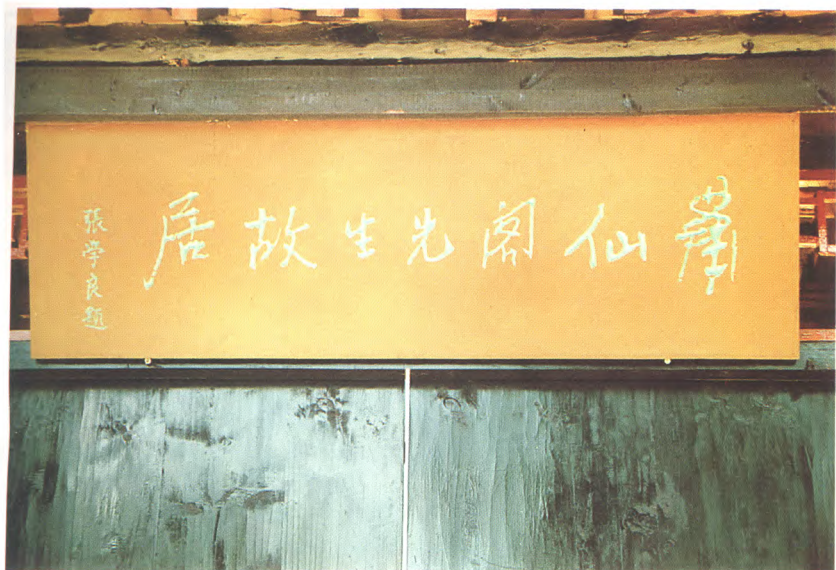 蕭仙閣先生故居
張學良題